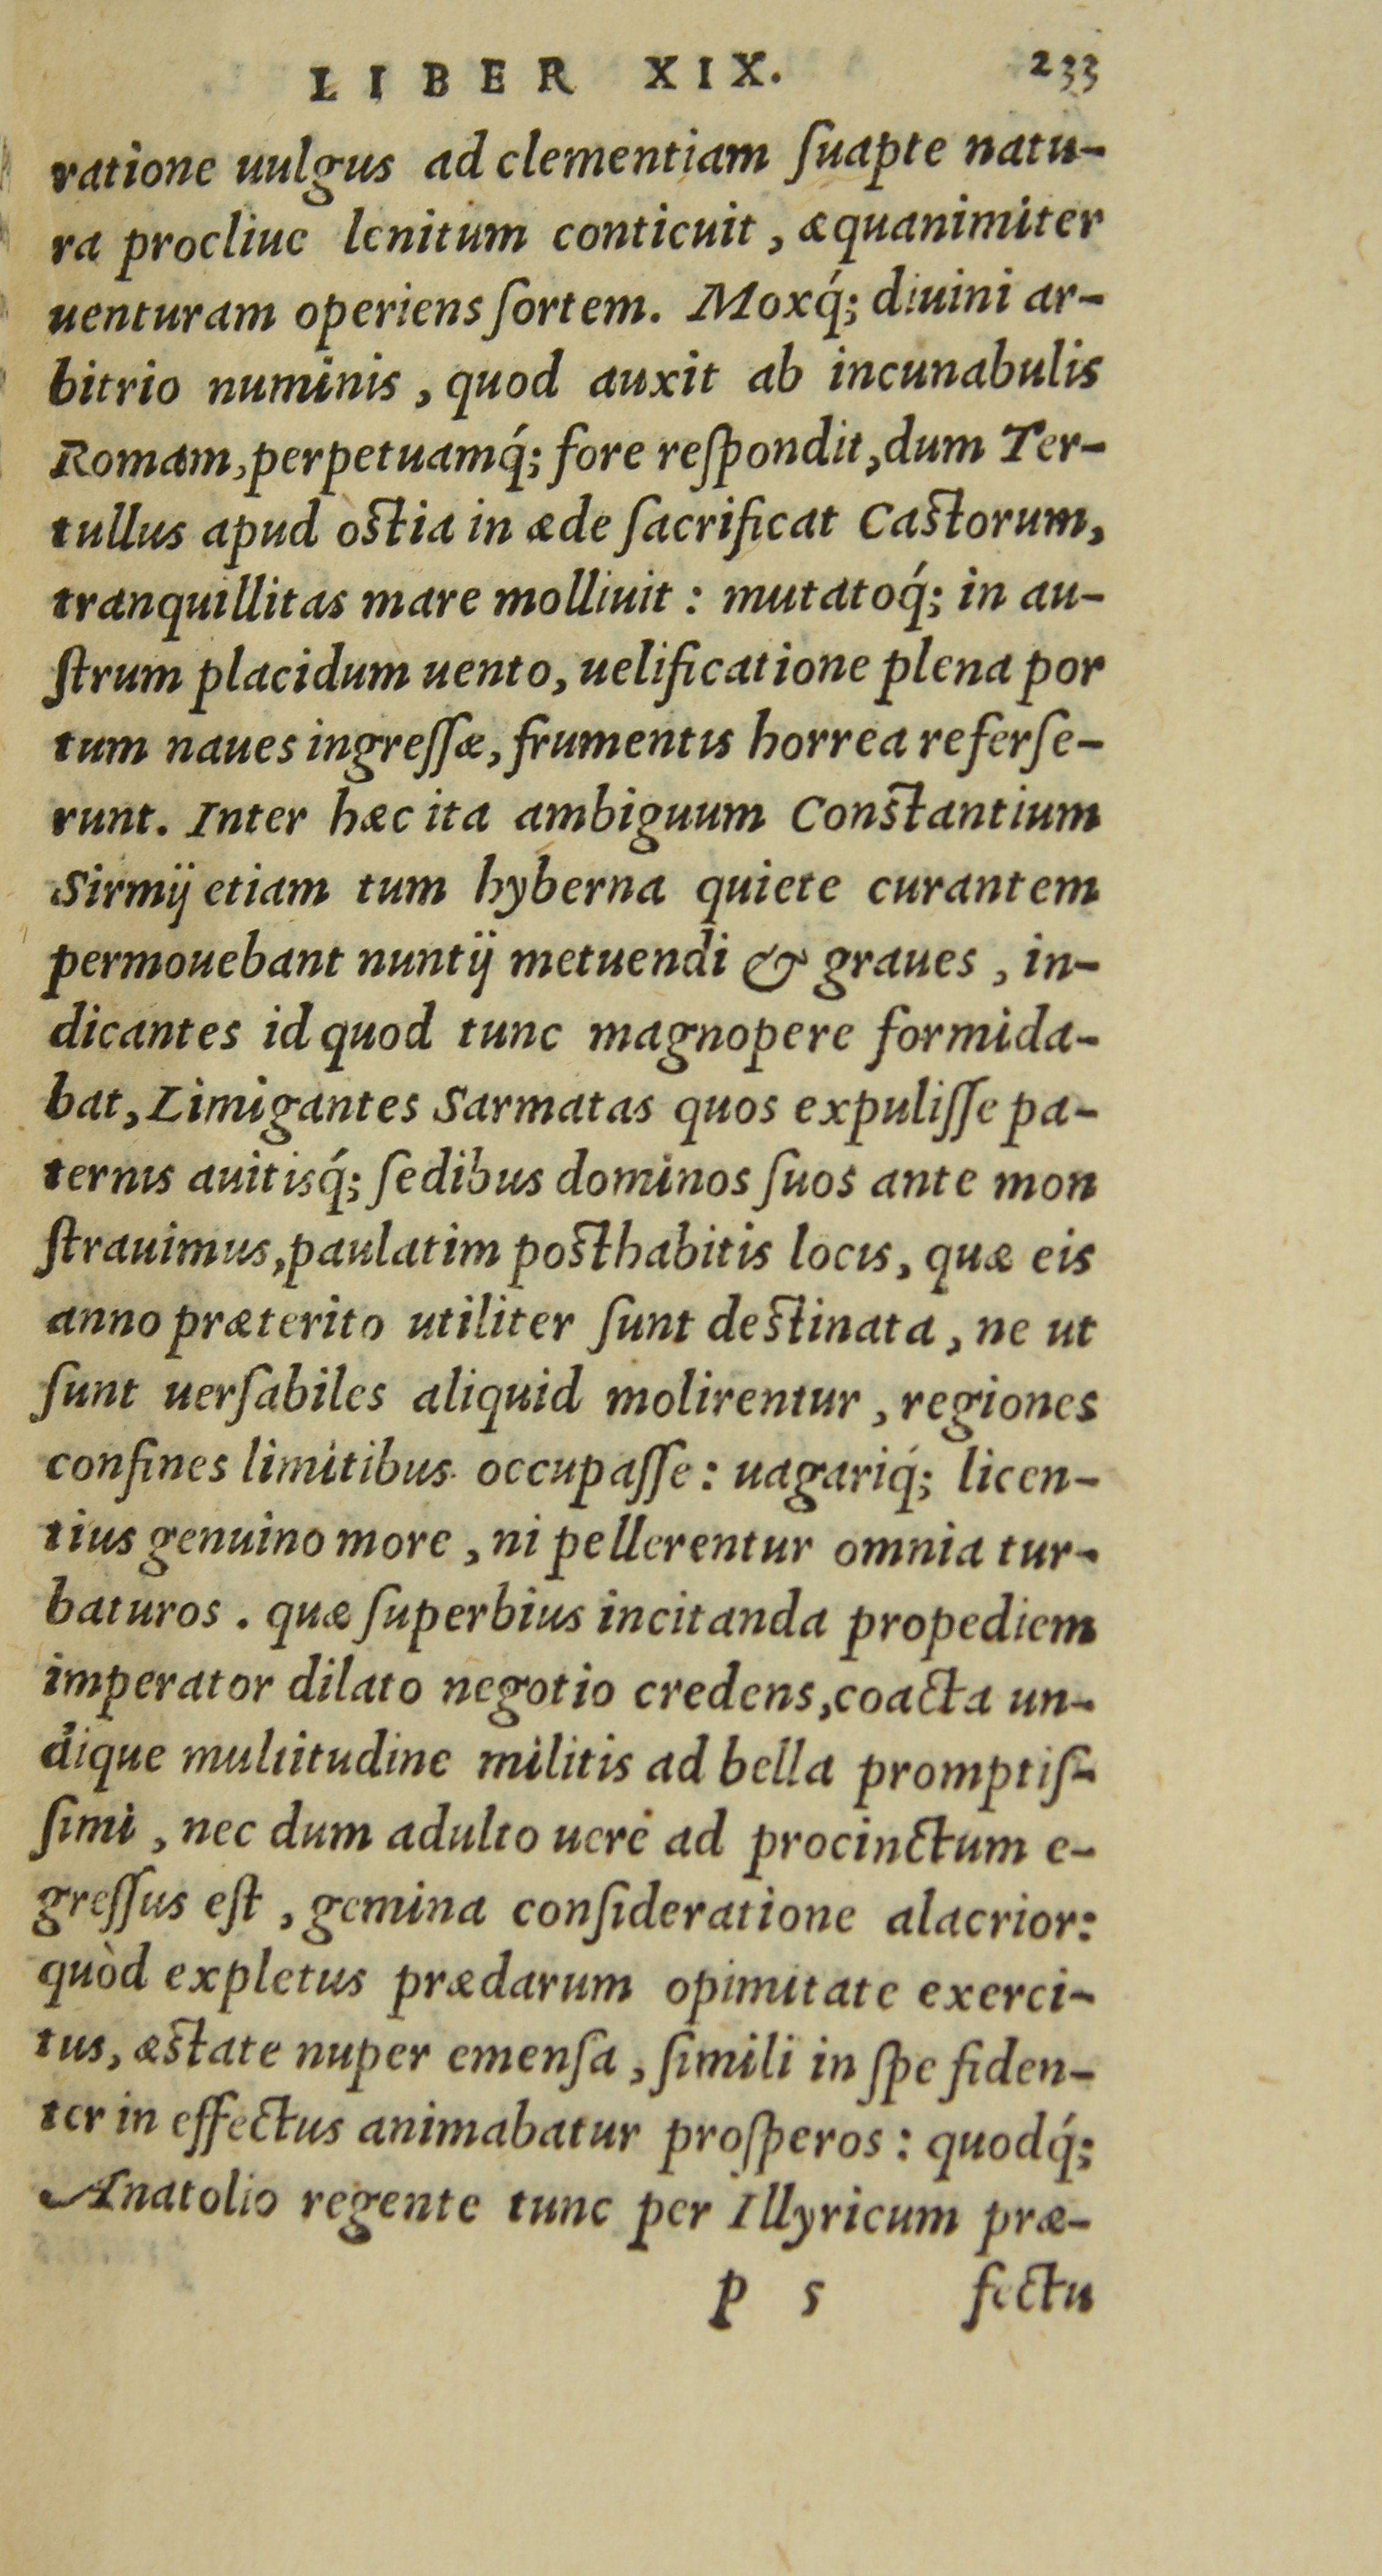 LIBER XIX. 233
ratione uulgus ad clementiam ſuapte natu-
ra procliue lenitum conticuit, æquanimiter
uenturam operiens ſortem. Moxq́; diuini ar-
bitrio numinis, quod auxit ab incunabulis
Romam, perpetuamq́; fore reſpondit, dum Ter-
tullus apud oſtia in æde ſacrificat Caſtorum,
tranquillitas mare molliuit: mutatoq́; in au-
ſtrum placidum uento, uelificatione plena por
tum naues ingreſſæ, frumentis horrea referſe-
runt. Inter hæc ita ambiguum Conſtantium
Sirmij etiam tum hyberna quiete curantem
permouebant nuntij metuendi & graues, in-
dicantes id quod tunc magnopere formida-
bat, Limigantes Sarmatas quos expuliſſe pa-
ternis auitisq́; ſedibus dominos ſuos ante mon
ſtrauimus, paulatim poſthabitis locis, quæ eis
anno præterito utiliter ſunt deſtinata, ne ut
ſunt uerſabiles aliquid molirentur, regiones
confines limitibus occupaſſe: uagariq́; licen-
tius genuino more, ni pellerentur omnia tur-
baturos. quæ ſuperbius incitanda propediem
imperator dilato negotio credens, coacta un-
dique multitudine militis ad bella promptiſ-
ſimi, nec dum adulto uere ad procinctum e-
greſſus eſt, gemina conſideratione alacrior:
quòd expletus prædarum opimitate exerci-
tus, æſtate nuper emenſa, ſimili in ſpe fiden-
ter in effectus animabatur proſperos: quodq́;
Anatolio regente tunc per Illyricum præ-
p 5 fectu